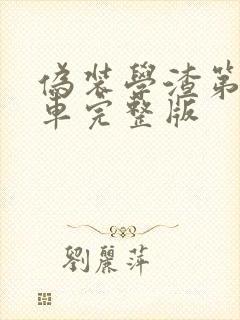 偽裝學渣第
車完整版
劉麗萍